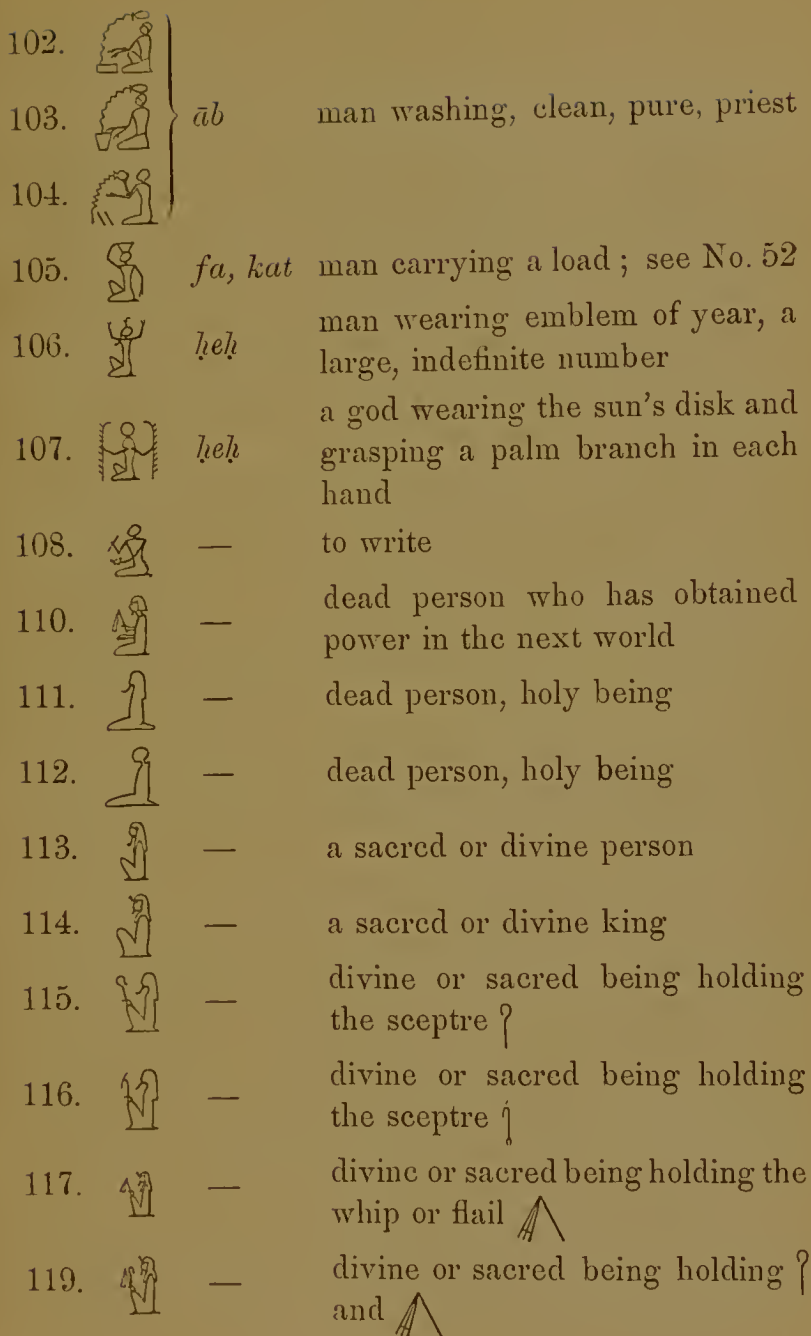 102.
103. āb man washing, clean, pure, priest
104.
105. fa, kat man carrying a load ; see No. 52
106. ḥeḥ man wearing emblem of year, a
large, indefinite number
107. ḥeḥ a god wearing the sun's disk and
grasping a palm branch in each
hand
108. — to write
110. — dead person who has obtained
power in the next world
111. — dead person, holy being
112. — dead person, holy being
113. — a sacred or divine person
114. — a sacred or divine king
115. — divine or sacred being holding
the sceptre
116. — divine or sacred being holding
the sceptre
117. — divine or sacred being holding the
whip or flail
119. — divine or sacred being holding
and